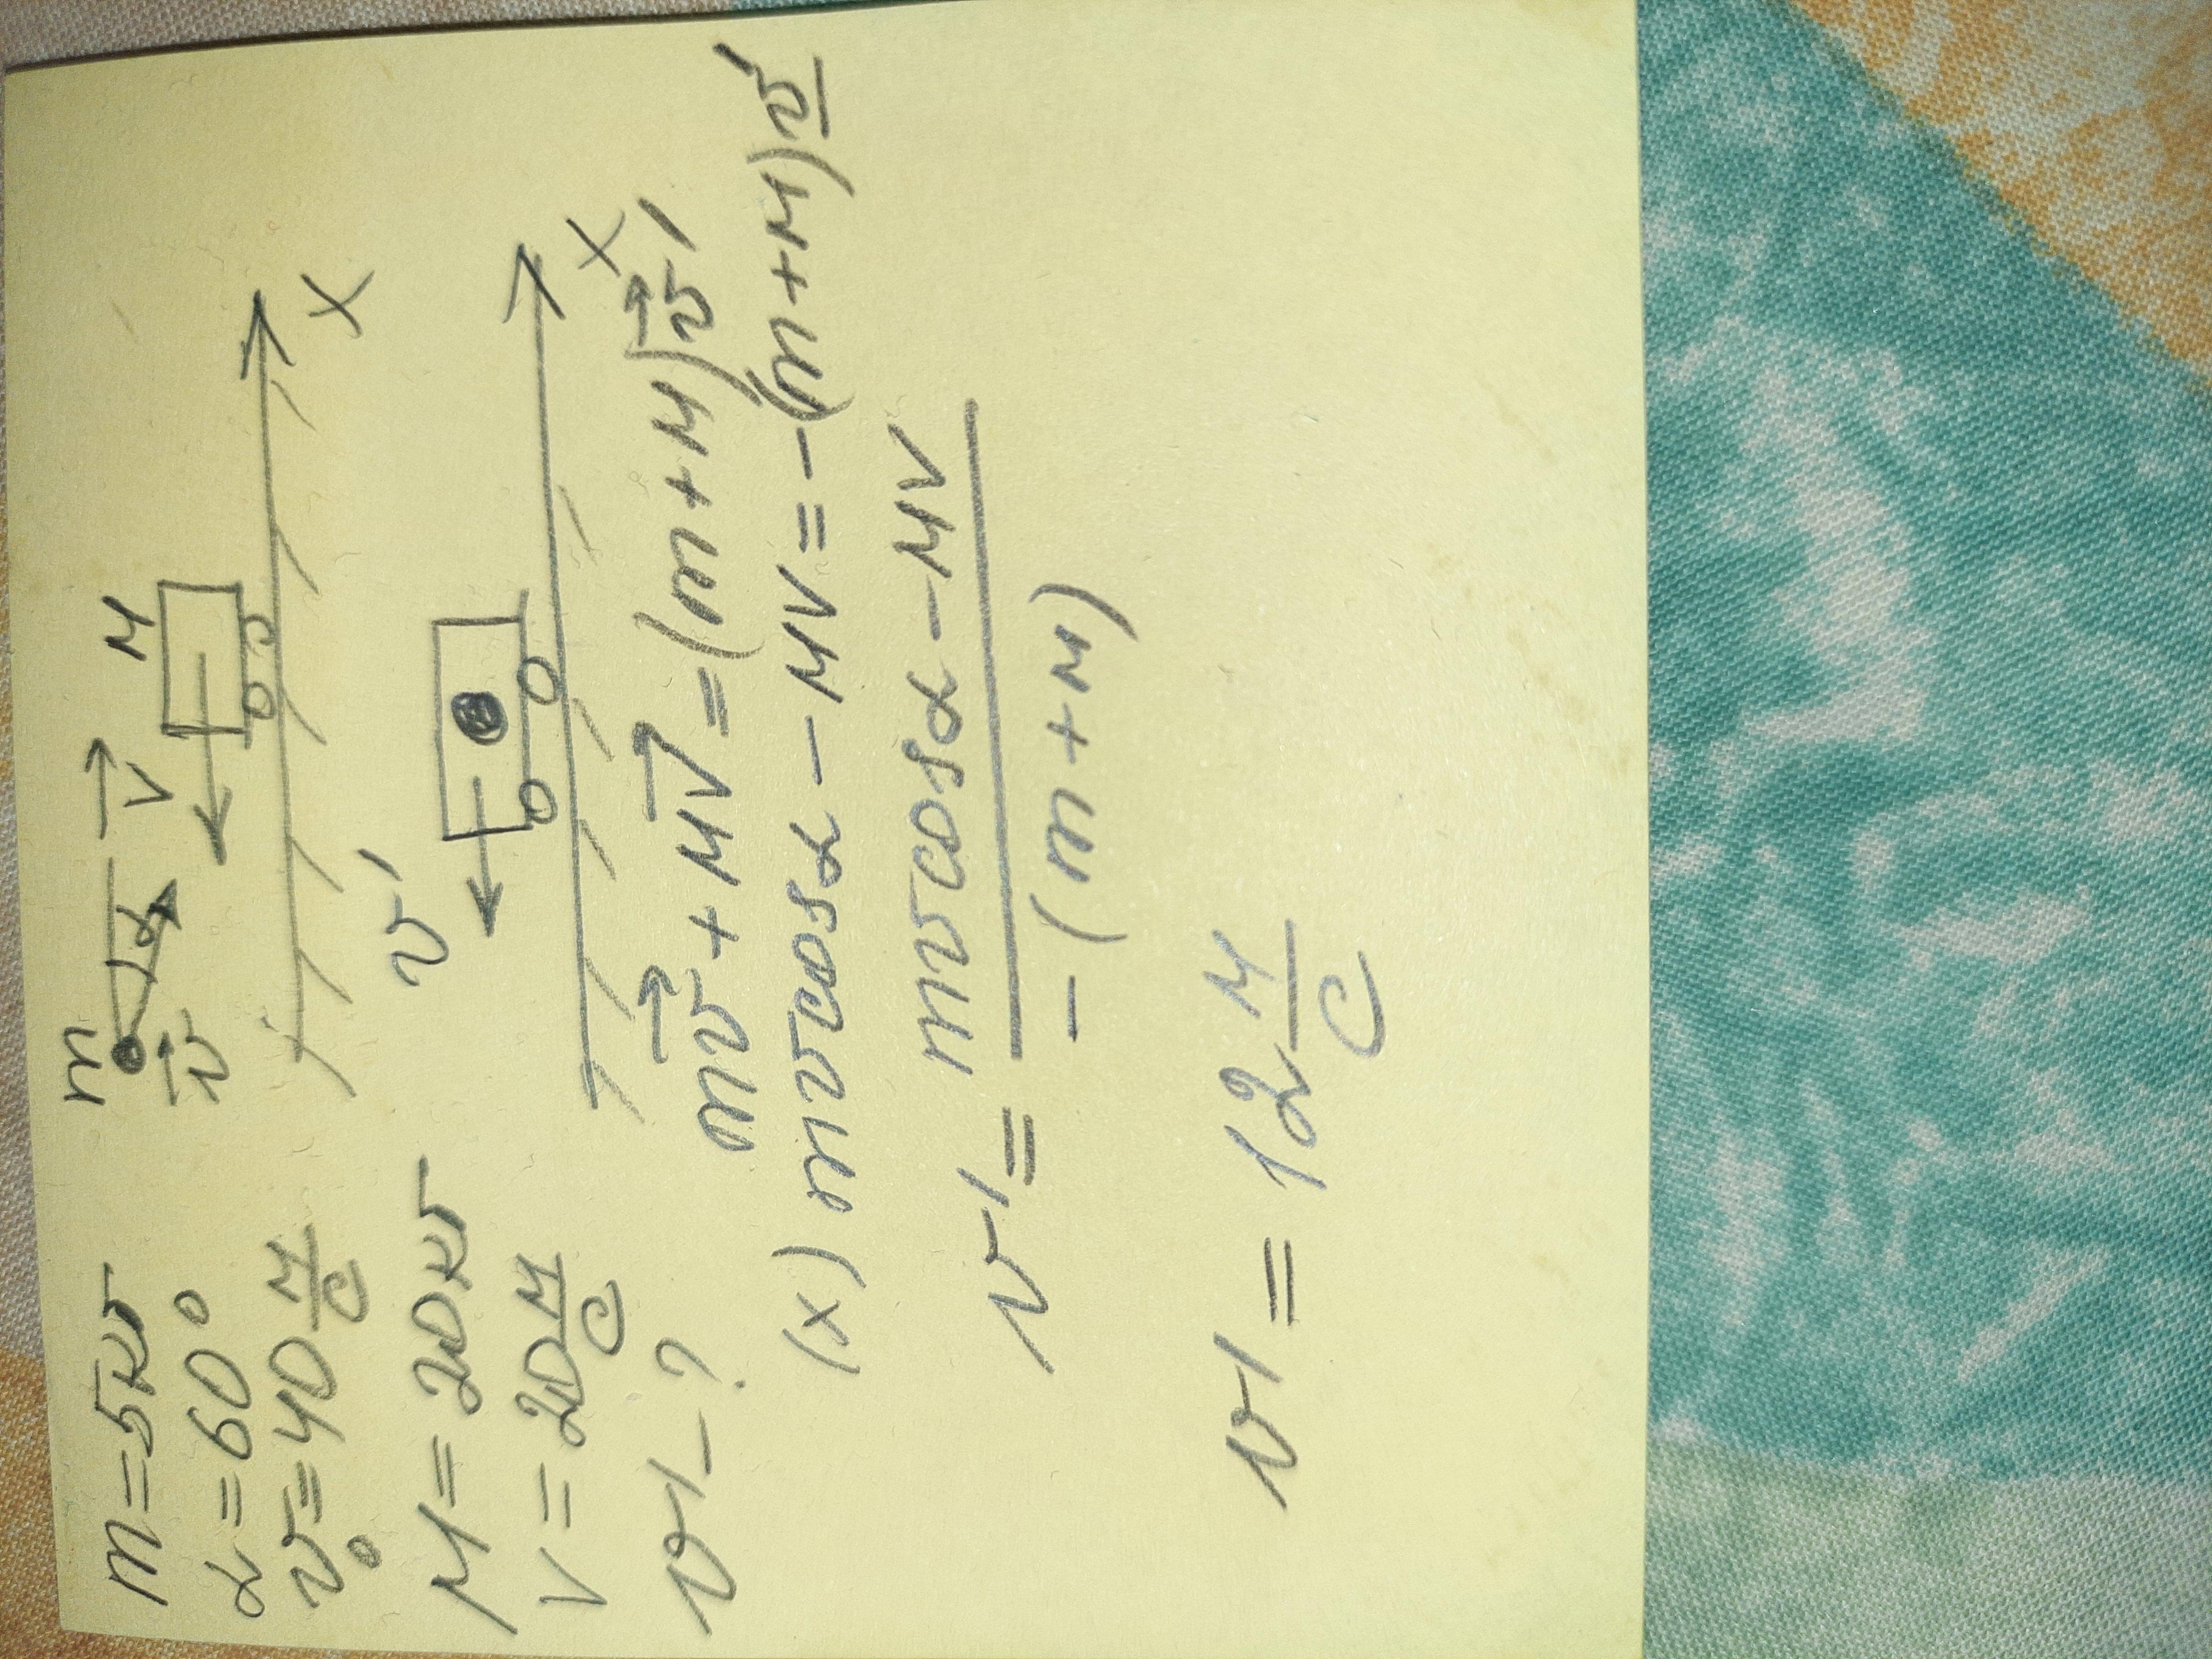 m = 5 кг
α = 60°
v₀ = 40 м/с
M = 20 кг
V = 20 м/с
v' - ?
m
v⃗
α
V⃗
M
X
v'
X
mv⃗ + MV⃗ = (m + M)v⃗'
(x) mv cosα - MV = -(m + M)v'
v' = mv cosα - MV / -(m + M)
v' = 12 м/с